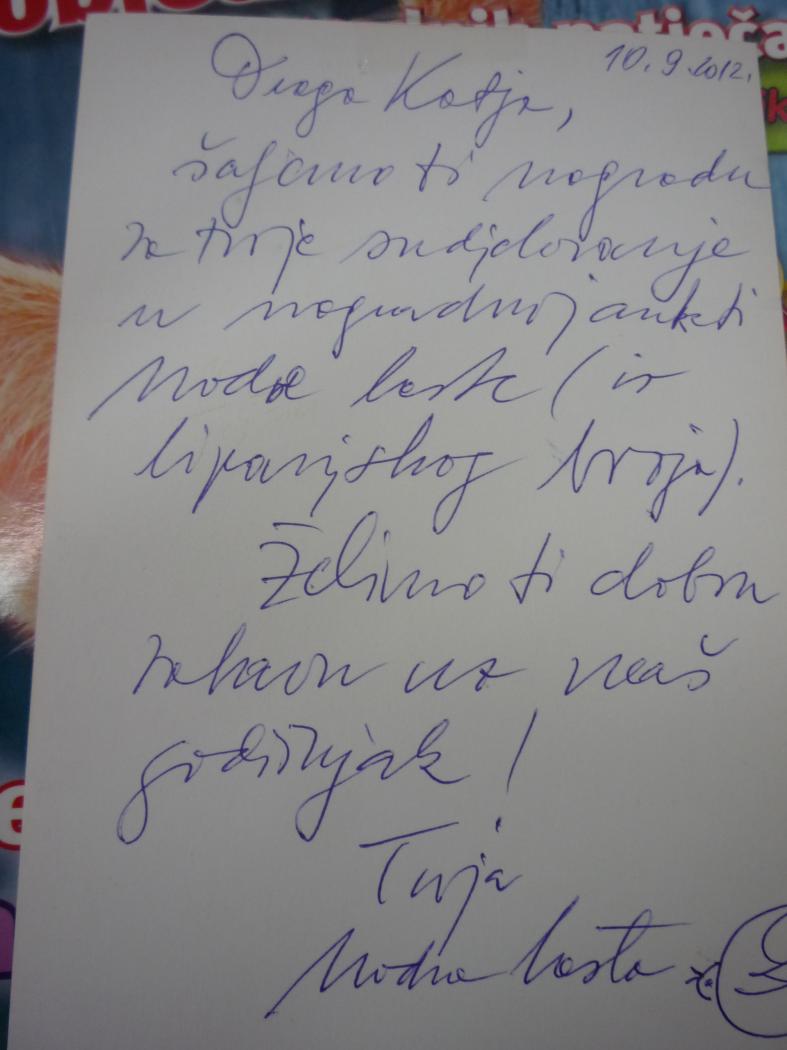 10.9.2012.
Draga Katja,
šaljemo ti nagradu
za tvoje sudjelovanje
u nagradnoj anketi
Modre laste (iz
lipanjskog broja).
Želimo ti dobru
zabavu uz naš
godišnjak!
Tvoja
Modra lasta